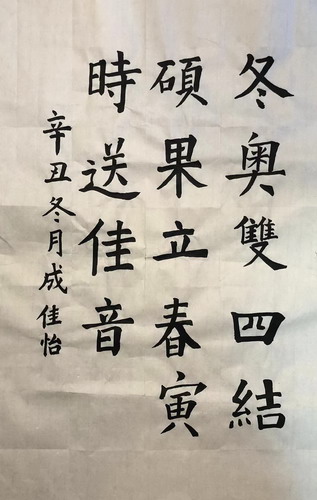 冬奥雙四結
碩果立春寅
時送佳音
辛丑冬月成佳怡